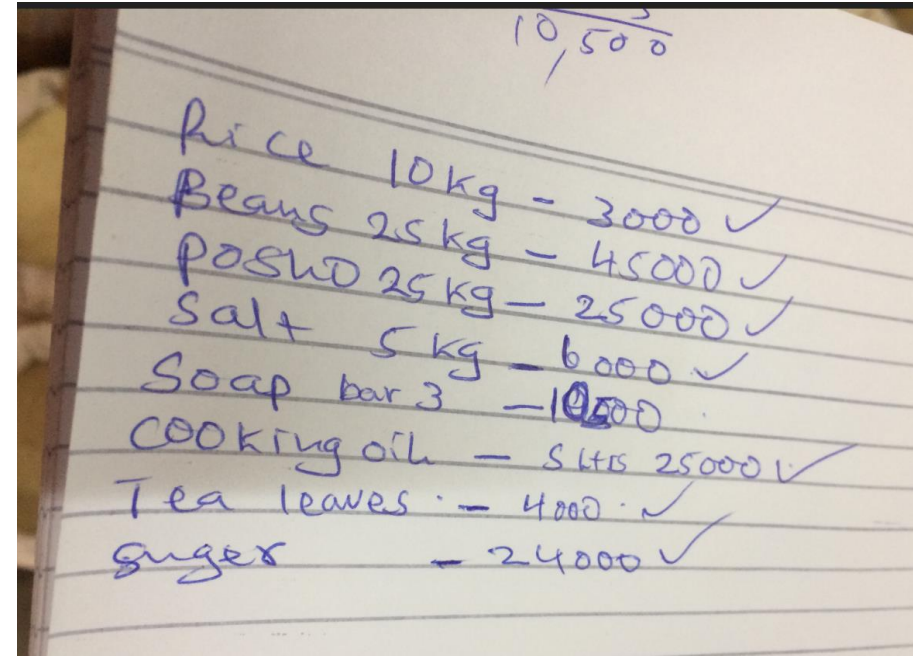 10,500
Rice 10kg - 3000 ✓
Beans 25kg - 45000 ✓
Posho 25kg - 25000 ✓
Salt 5kg - 6000 ✓
Soap bar 3 - 10500
Cooking oil - 5 ltrs 25000 ✓
Tea leaves - 4000 ✓
suger - 24000 ✓